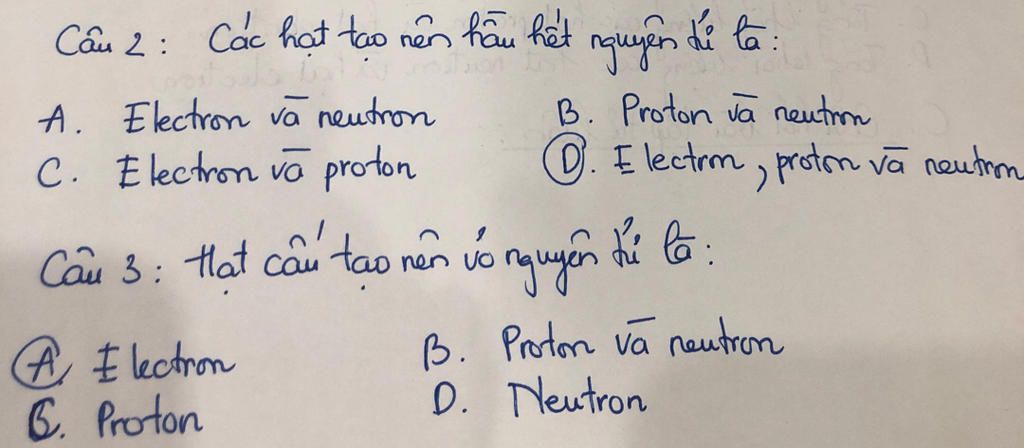 Câu 2 : Các hạt tạo nên hầu hết nguyên tử là :
A. Electron và neutron B. Proton và neutron
C. Electron và proton D. Electron, proton và neutron
Câu 3 : Hạt cấu tạo nên vỏ nguyên tử là :
A. Electron B. Proton và neutron
C. Proton D. Neutron